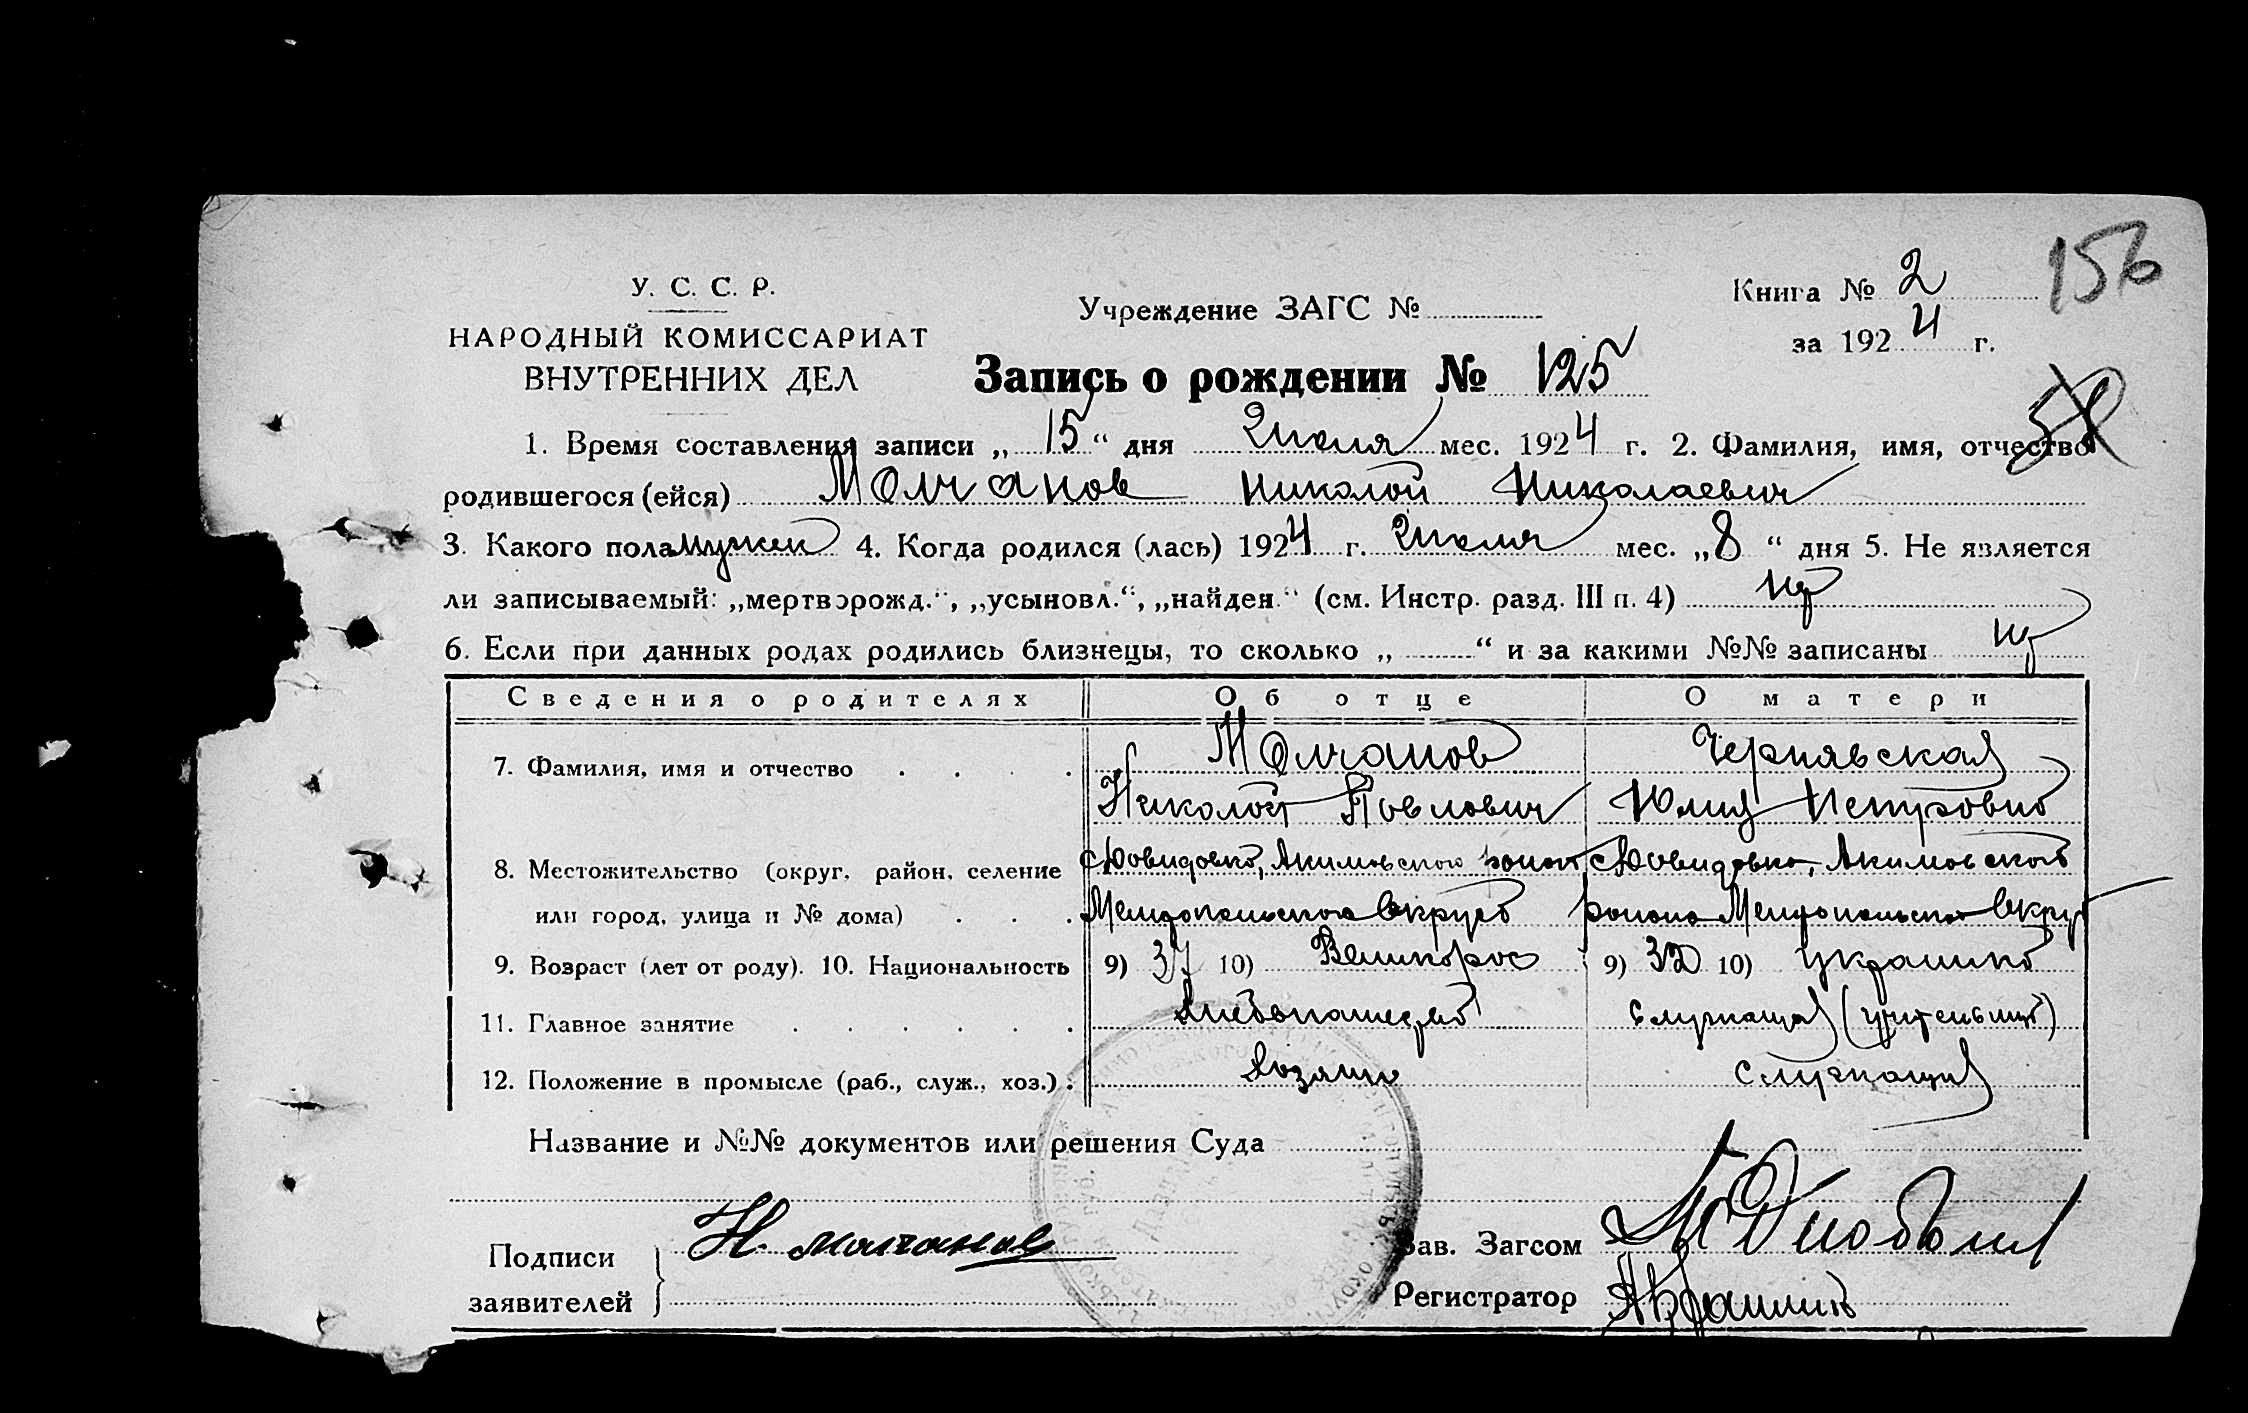 156
У. С. С. Р.
НАРОДНЫЙ КОМИССАРИАТ
ВНУТРЕННИХ ДЕЛ
Учреждение ЗАГС №
Книга № 2
за 1924 г.
Запись о рождении № 125
1. Время составления записи „15“ дня Июля мес. 1924 г. 2. Фамилия, имя, отчество
родившегося (ейся) Молчанов Николай Николаевич
3. Какого пола Мужск 4. Когда родился (лась) 1924 г. Июля мес. „8“ дня 5. Не является
ли записываемый: „мертворожд.“, „усыновл.“, „найден.“ (см. Инстр. разд. III п. 4)
6. Если при данных родах родились близнецы, то сколько „ “ и за какими №№ записаны
Сведения о родителях Об отце О матери
7. Фамилия, имя и отчество Молчанов Чернявская
Николай Павлович Юлия Петровна
8. Местожительство (округ, район, селение Акимовского район Акимовской
или город, улица и № дома) Мелитопольского Округа района Мелитопольского Округ
9. Возраст (лет от роду). 10. Национальность 9) 37 10) Великорос 9) 32 10) украинка
11. Главное занятие Хлебопашество Служащая (учительница)
12. Положение в промысле (раб., служ., хоз.) Хозяин Служащая
Название и №№ документов или решения Суда
Подписи заявителей Н. Молчанов
Зав. Загсом
Регистратор